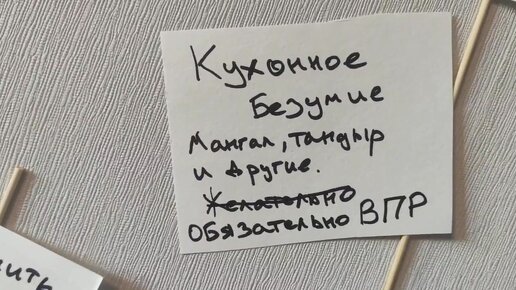 Кухонное
Безумие
Мангал, тандыр
и другие.
Желательно
ОБЯзательно ВПР